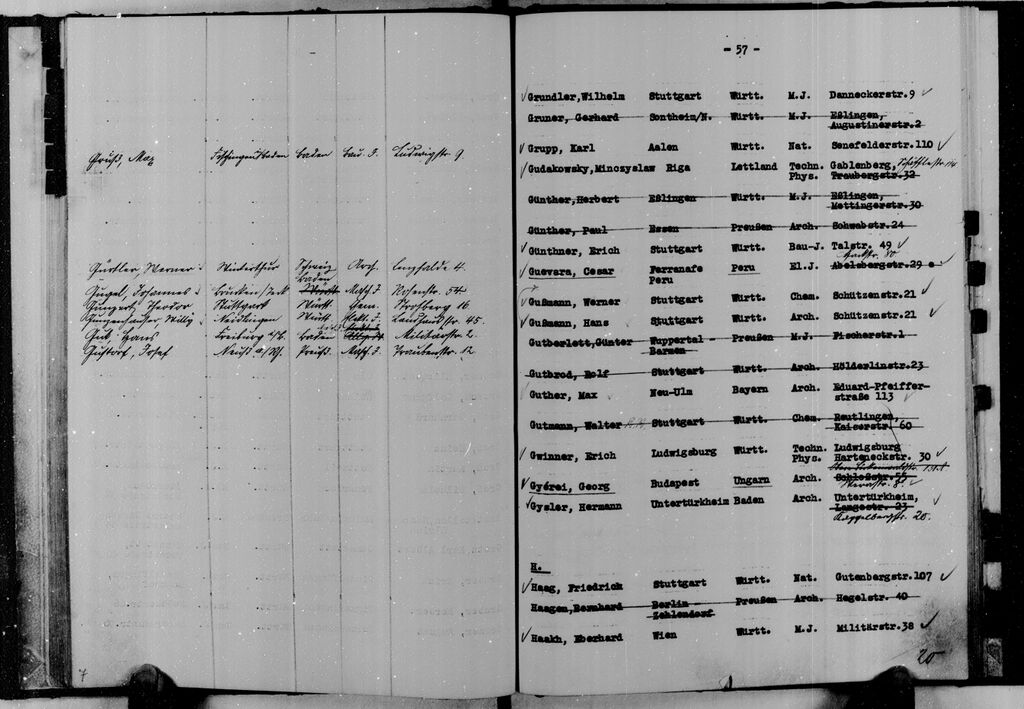 Gruß, Max baden Bau J. Ludwigstr. 9.
Gürtler, Werner Winterthur Schweiz Arch. Lenzhalde 4.
Baden
Gugel, Johannes Masch. J. Rosenstr. 54
Gungert, Theodor Stuttgart Württ. Gem. Forstberg 16
Gungenhauser, Willy Nördlingen Württ. Elekt. J. Landhausstr. 45.
Gut, Hans Freiburg Baden Militärstr. 2.
Gustorf, Josef Neuß a/Rh. Preuß. Masch. J. Traubenstr. 12
7
- 57 -
Grundler,Wilhelm Stuttgart Württ. M.J. Danneckerstr.9
Gruner, Gerhard Sontheim/N. Württ. M.J. Eßlingen,
Augustinerstr.2
Grupp, Karl Aalen Württ. Nat. Senefelderstr.110
Gudakowsky,Minczyslaw Riga Lettland Techn. Gablenberg,
Phys. Traubergstr.32
Günther,Herbert Eßlingen Württ. M.J. Eßlingen,
Mettingerstr.30
Günther, Paul Essen Preußen Arch. Schwabstr.24
Günthner, Erich Stuttgart Württ. Bau-J. Talstr. 49
Guevara, Cesar Ferranafe Peru El.J. Abelsbergstr.29
Peru
Gußmann, Werner Stuttgart Württ. Chem. Schützenstr.21
Gußmann, Hans Stuttgart Württ. Arch. Schützenstr.21
Gutberlett,Günter Wuppertal- Preußen M.J. Fischerstr.1
Barmen
Gutbrod, Rolf Stuttgart Württ. Arch. Hölderlinstr.23
Guther, Max Neu-Ulm Bayern Arch. Eduard-Pfeiffer-
straße 113
Gutmann, Walter Stuttgart Württ. Chem. Reutlingen,
Kaiserstr. 60
Gwinner, Erich Ludwigsburg Württ. Techn. Ludwigsburg
Phys. Harteneckstr. 30
Gyérei, Georg Budapest Ungarn Arch. Schloßstr.54
Gysler, Hermann Untertürkheim Baden Arch. Untertürkheim,
Langestr. 23
Kappelbergstr. 20.
H.
Haag, Friedrich Stuttgart Württ. Nat. Gutenbergstr.107
Haagen,Bernhard Berlin - Preußen Arch. Hegelstr. 40
Zehlendorf
Haakh, Eberhard Wien Württ. M.J. Militärstr.38
20